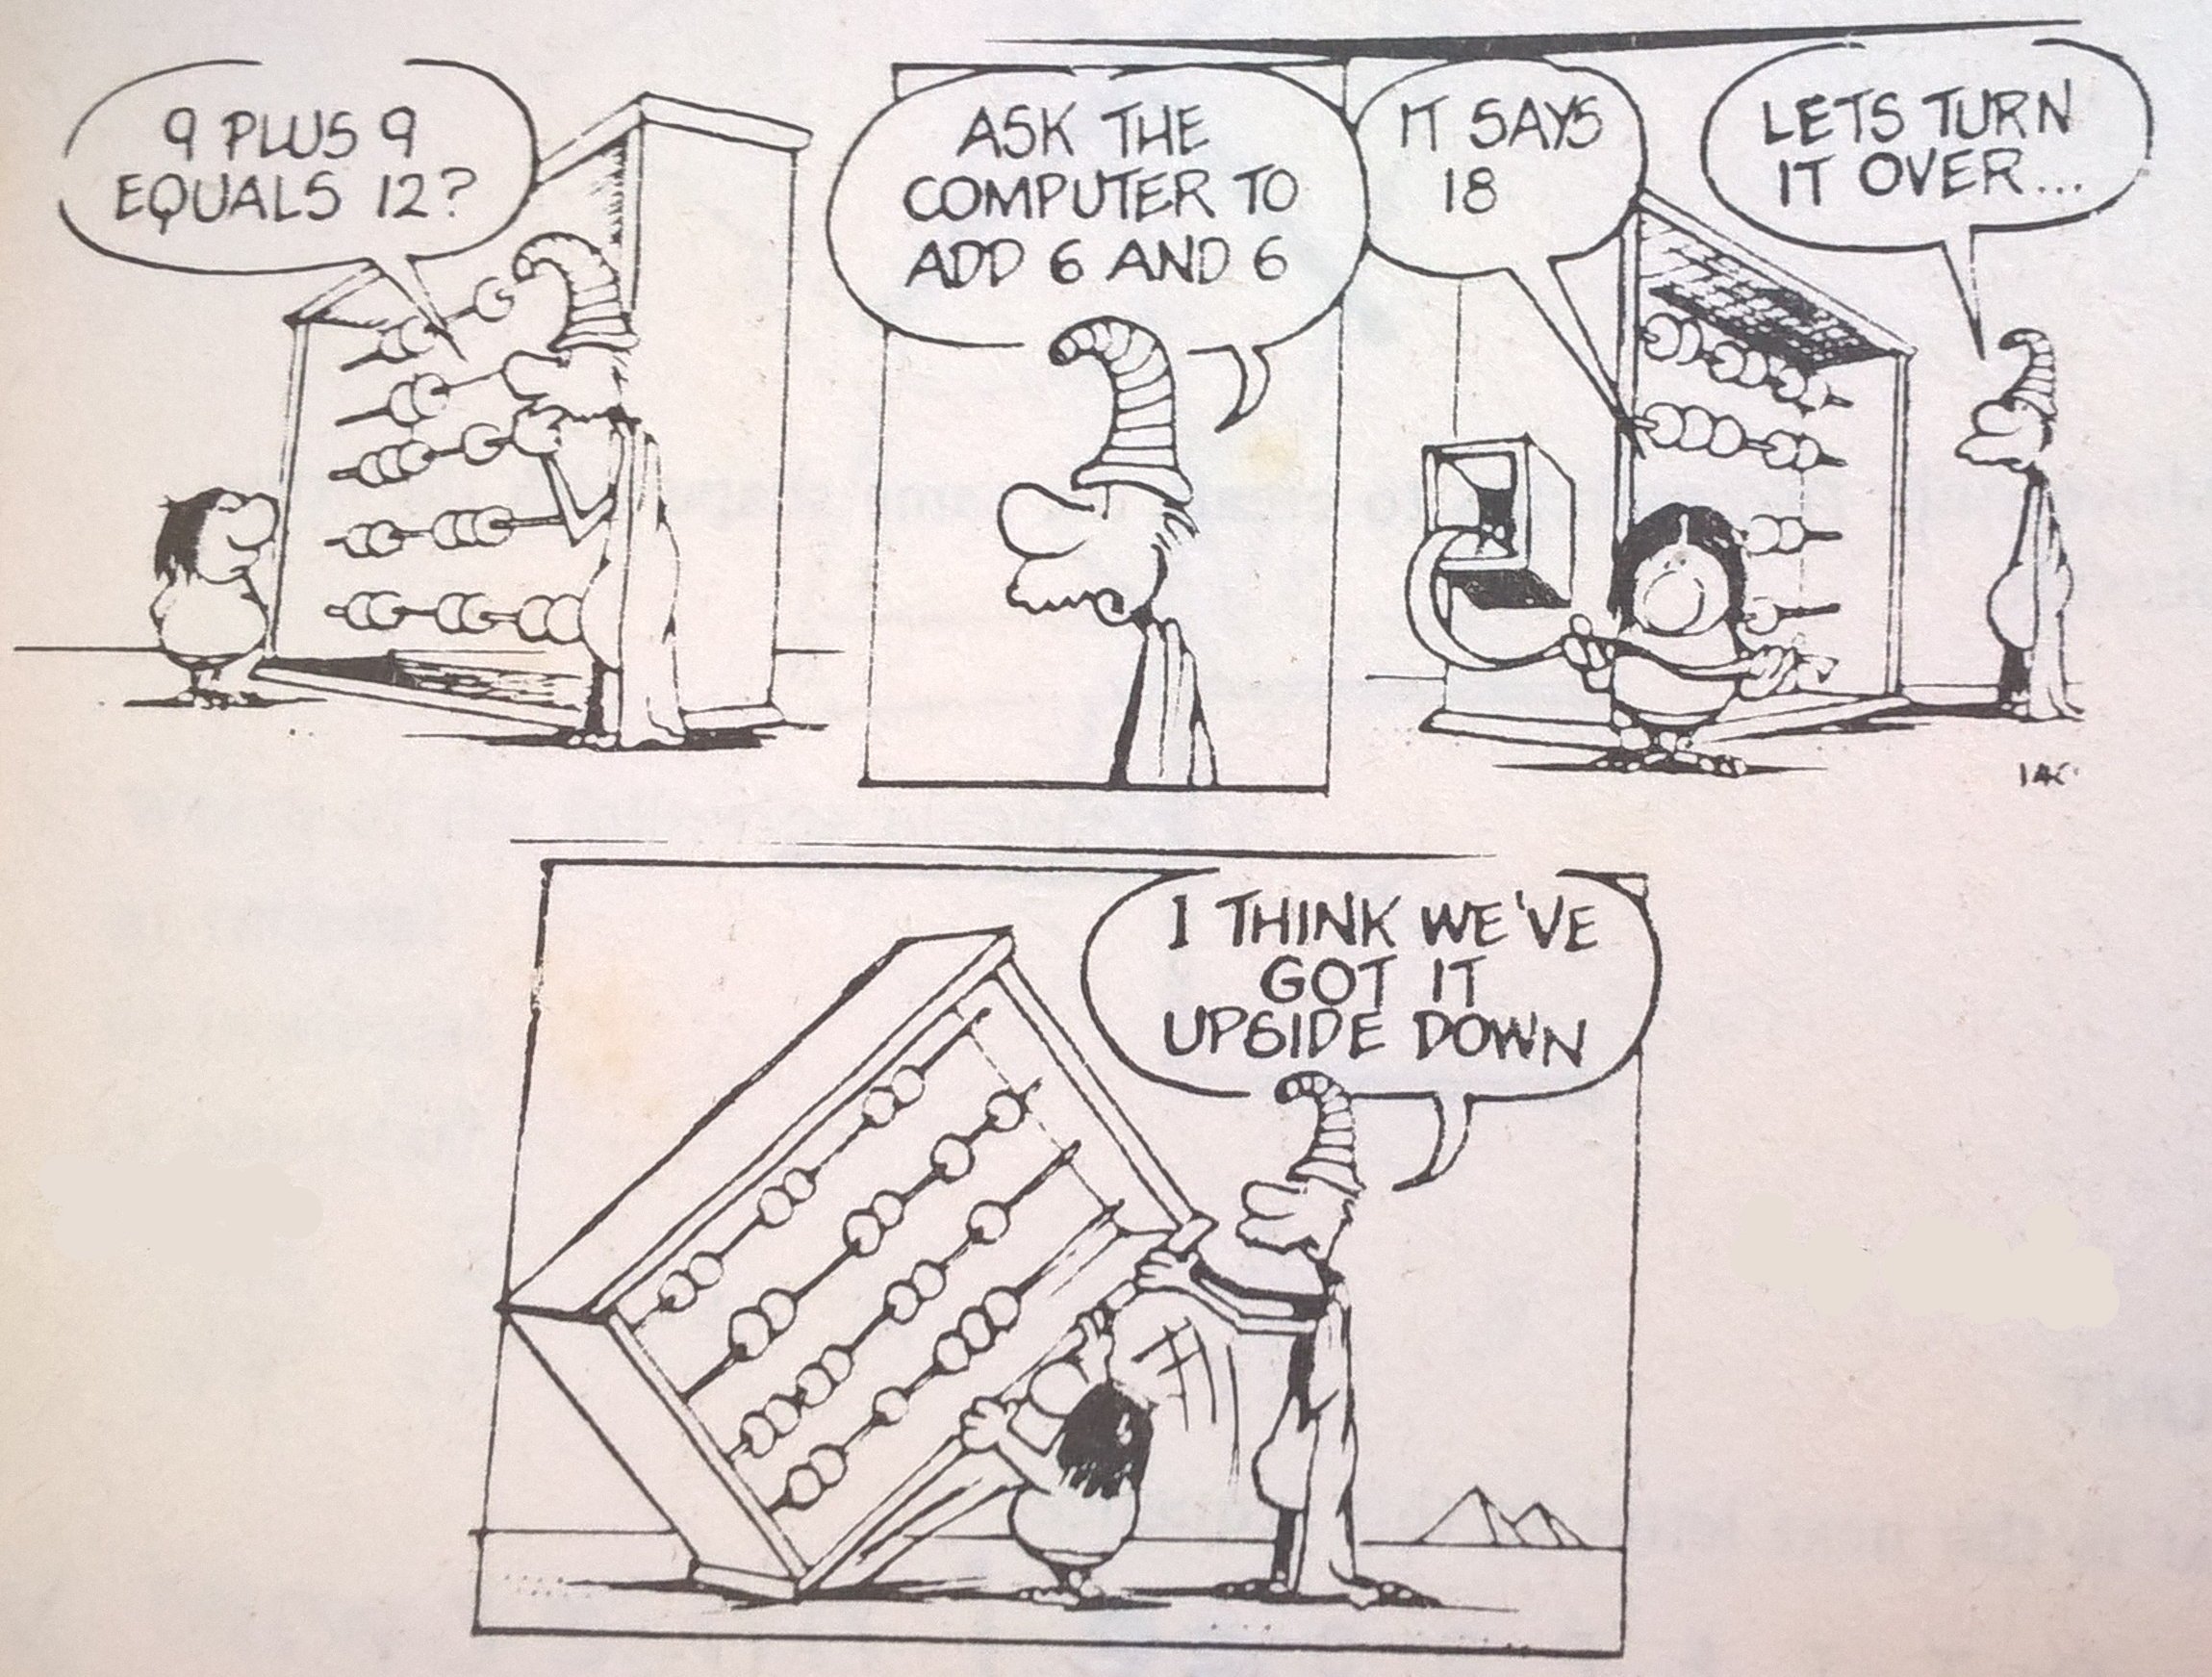 9 PLUS 9
EQUALS 12?
ASK THE
COMPUTER TO
ADD 6 AND 6
IT SAYS
18
LETS TURN
IT OVER...
I THINK WE'VE
GOT IT
UPSIDE DOWN